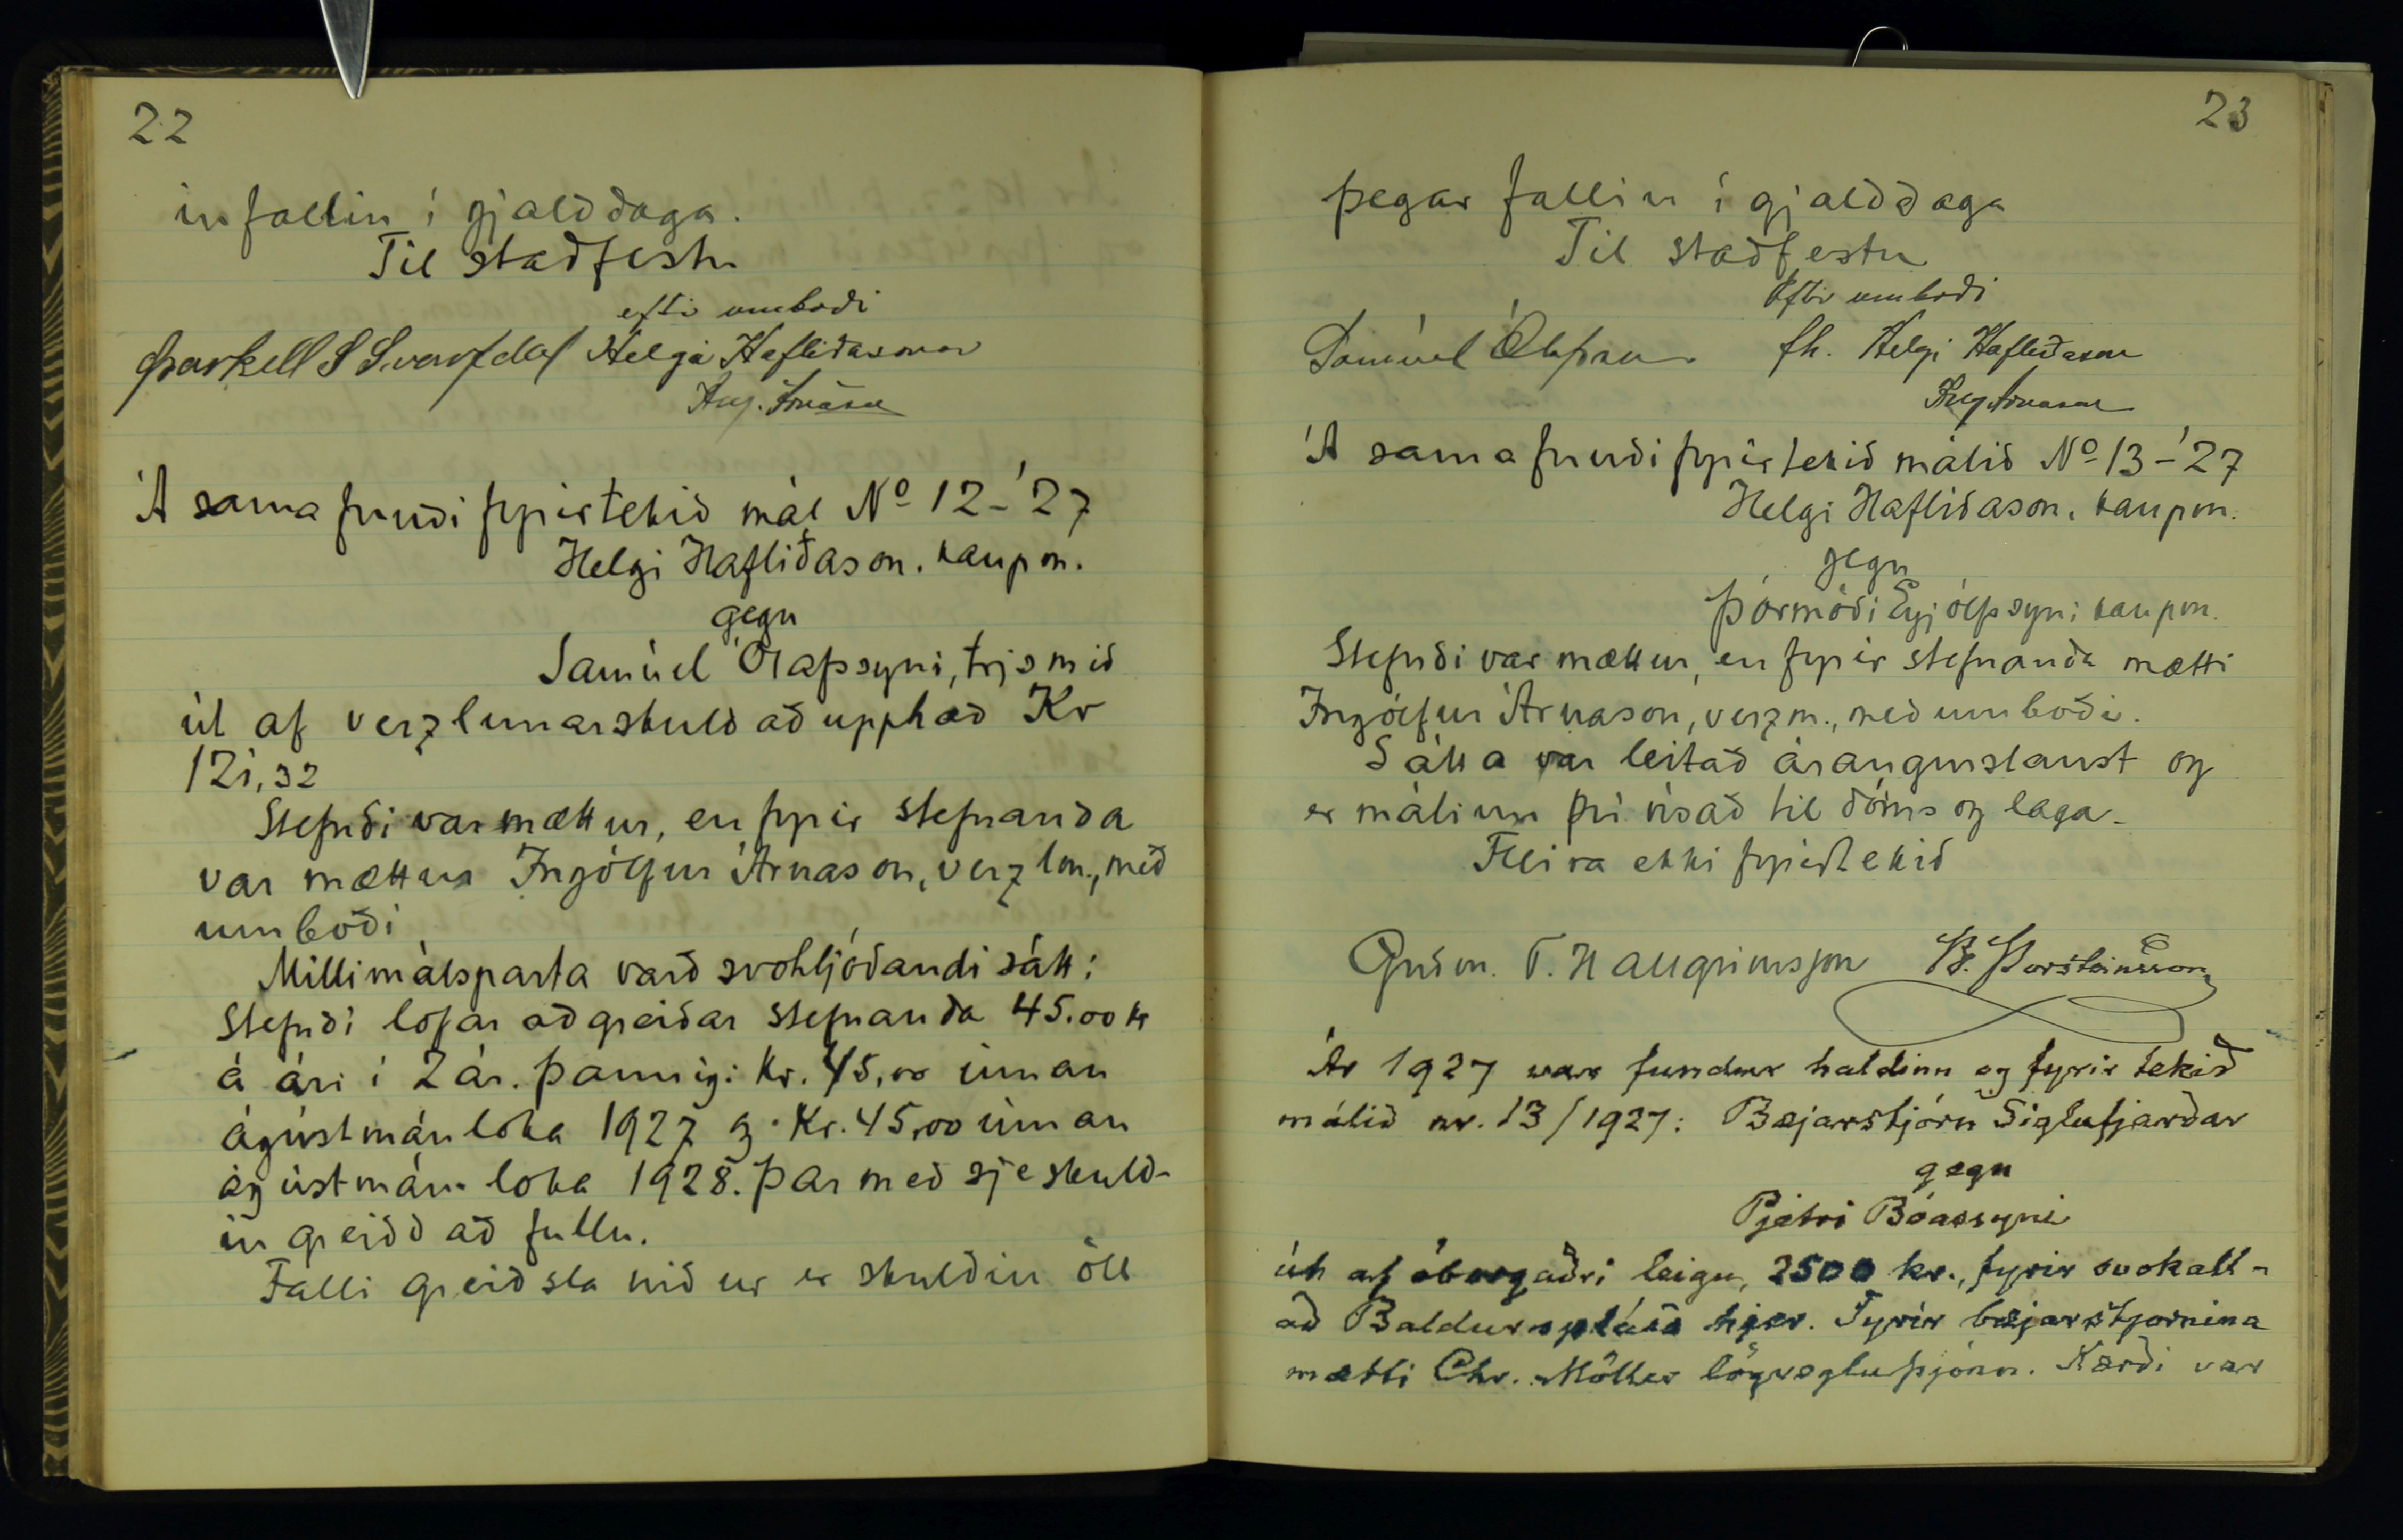 22
in fallin í gjalddaga.
Til staðfestu
eftir umboði
Þorkell S Svarfdal Helga Hafliðasonar
Ing. Árnason
Á sama fundi fyrirtekið mál No 12-'27
Helgi Hafliðason, kaupm.
gegn
Samúel Ólafssyni, trjsmið
út af verzlunarskuld að upphæð Kr
121,32
Stefndi var mættur, en fyrir stefnanda
var mættur Ingólfur Árnason, verzlm., með
umboði
Milli málsparta varð svohljóðandi sátt:
Stefndi lofar að greiðar stefnanda 45.00 kr
á ári í 2 ár. Þannig: Kr. 45,00 innan
ágústmán loka 1927 og Kr. 45,00 innan
ágústmán loka 1928. Þar með sje skuld-
in greidd að fullu.
Falli greiðsla niður er skuldin öll
23
þegar fallin í gjalddaga
Til staðfestu
Eftir umboði
Samúel Ólafsson fh. Helgi Hafliðason
Ing Árnason
Á sama fundi fyrirtekið málið No 13-'27
Helgi Hafliðason, kaupm.
gegn
Þórmóði Eyjólfssyni kaupm.
Stefndi var mættur, en fyrir stefnanda mætti
Ingólfur Árnason, verzm., með umboði.
Sátta var leitað árangurslaust og
er málinu því vísað til dóms og laga.
Fleira ekki fyrirtekið
Guðm. T. Hallgrimsson B. Þorsteinsson
Ár 1927 var fundur haldinn og fyrir tekið
málið nr. 13/1927: Bæjarstjórn Siglufjarðar
gegn
Pjetri Bóassyni
út af óborgaðri leigu, 2500 kr., fyrir svokall-
að Baldurspláss hjer. Fyrir bæjarstjornina
mætti Chr. Möller lögregluþjónn. Kærði var